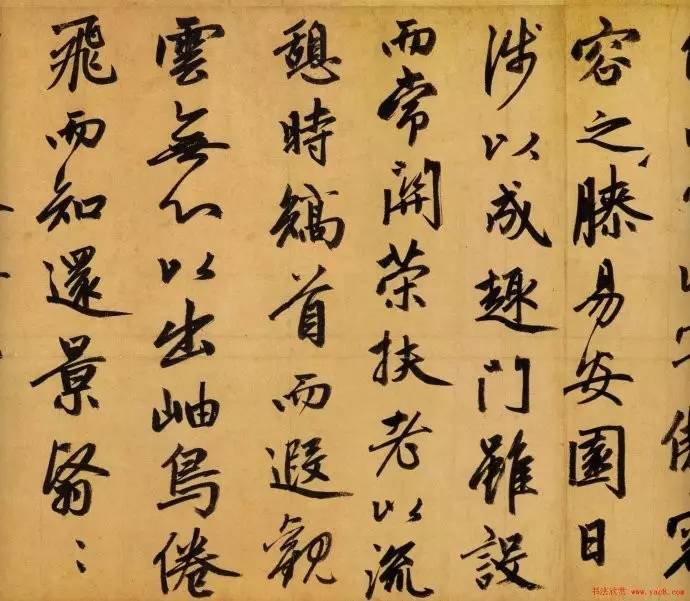 容之膝易安園日
涉以成趣門雖設
而常關策扶老以流
憩時矯首而遐觀
雲無心以出岫鳥倦
飛而知還景翳〻
书法欣赏 www.yac8.com